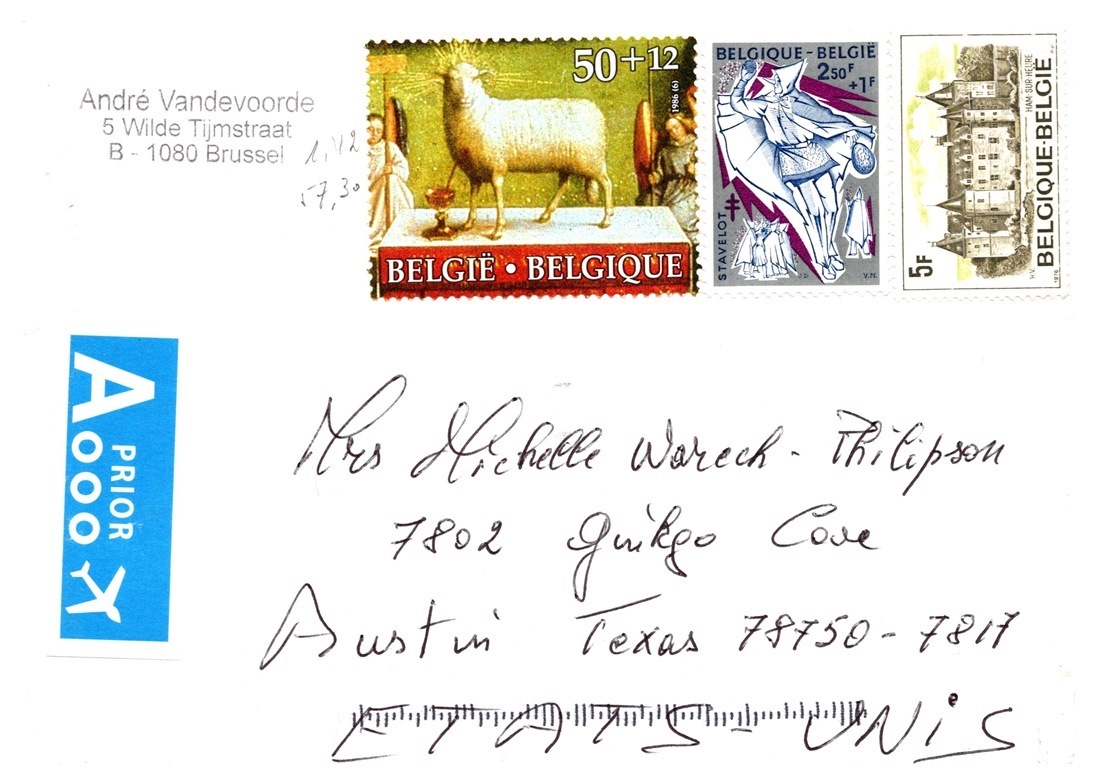 André Vandevoorde
5 Wilde Tijmstraat
B - 1080 Brussel
1,42
57,30
50+12
1986 (6)
BELGIË • BELGIQUE
BELGIQUE-BELGIË
2 50F
+1F
STAVELOT
J.D
V.M.
5F
HAM-SUR-HEURE
BELGIQUE-BELGIË
H.V.
1976
A
PRIOR
Mrs Michelle Warech - Philipson
7802 Ginkgo Cove
Austin Texas 78750-7817
ETATS-UNIS